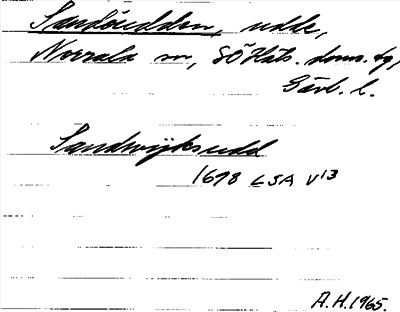 Sandöudden, udde,
Norrala sn, SÖ Häls. doms. tg,
Gävl. l.
Sandwijksudd
1698 LSA V13
A.H. 1965.